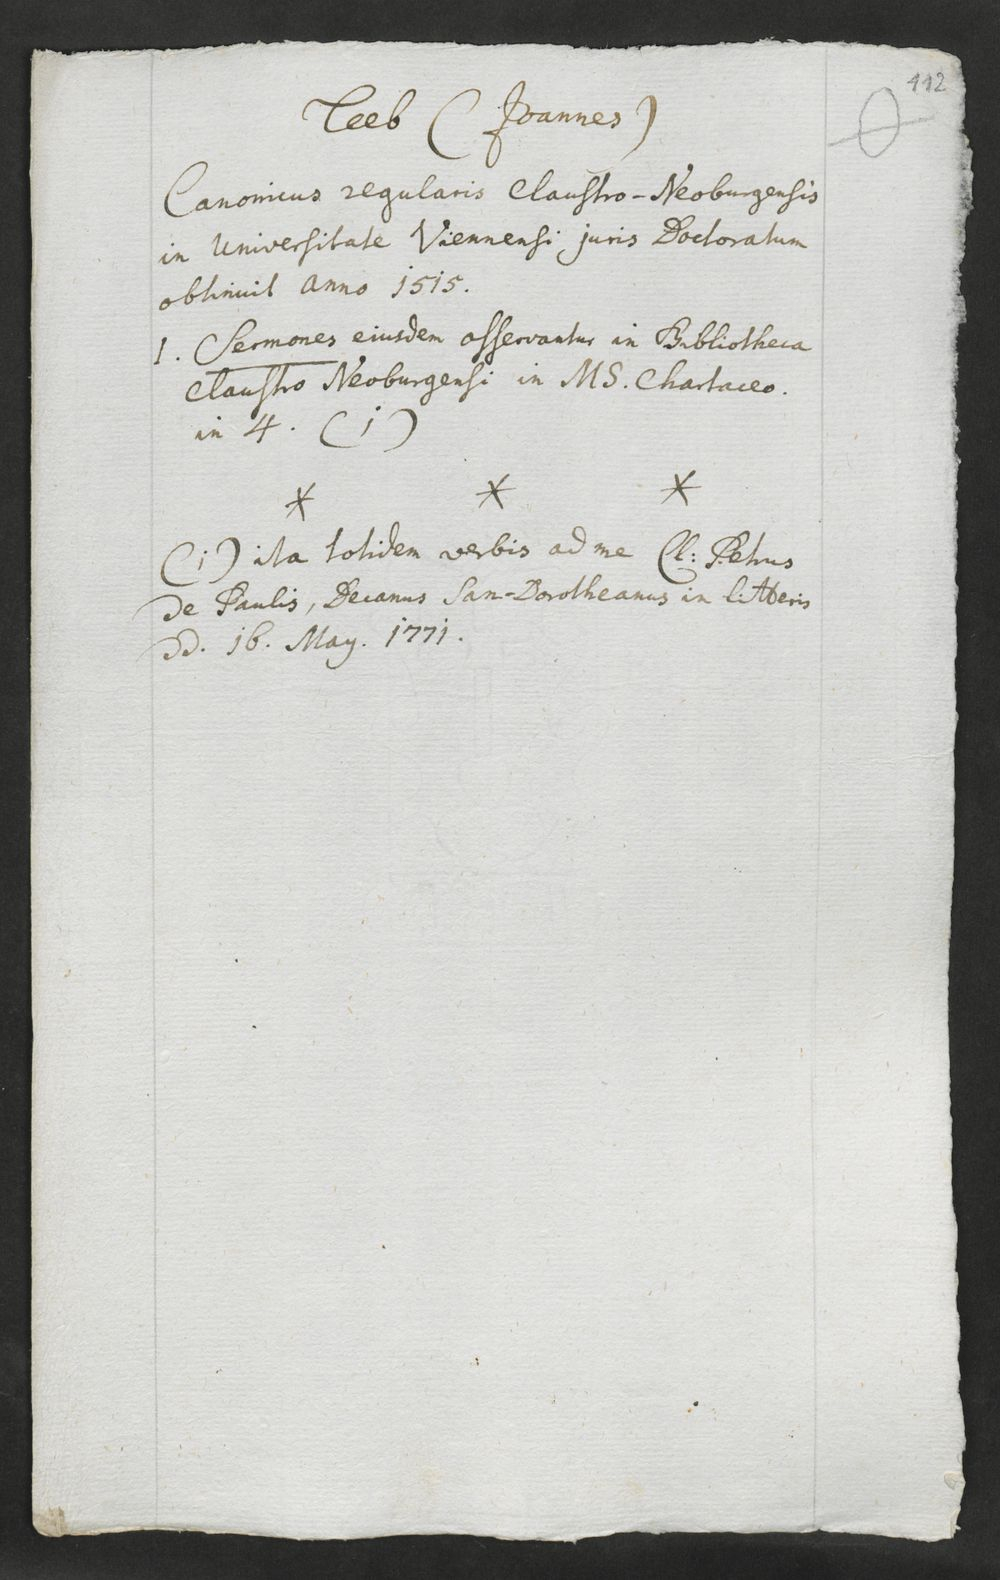 112
Teeb (Joannes)
Canonicus regularis Claustro-Neoburgensis
in Universitate Viennensi juris Doctoratum
obtinuit Anno 1515.
1. Sermones eiusdem asservantur in Bibliotheca
Claustro Neoburgensi in MS. Chartaceo.
in 4. (1)
* * *
(1) ita totidem verbis ad me Cl: Petrus
de Paulis, Decanus San-Dorotheanus in litteris
dd. 16. May. 1771.